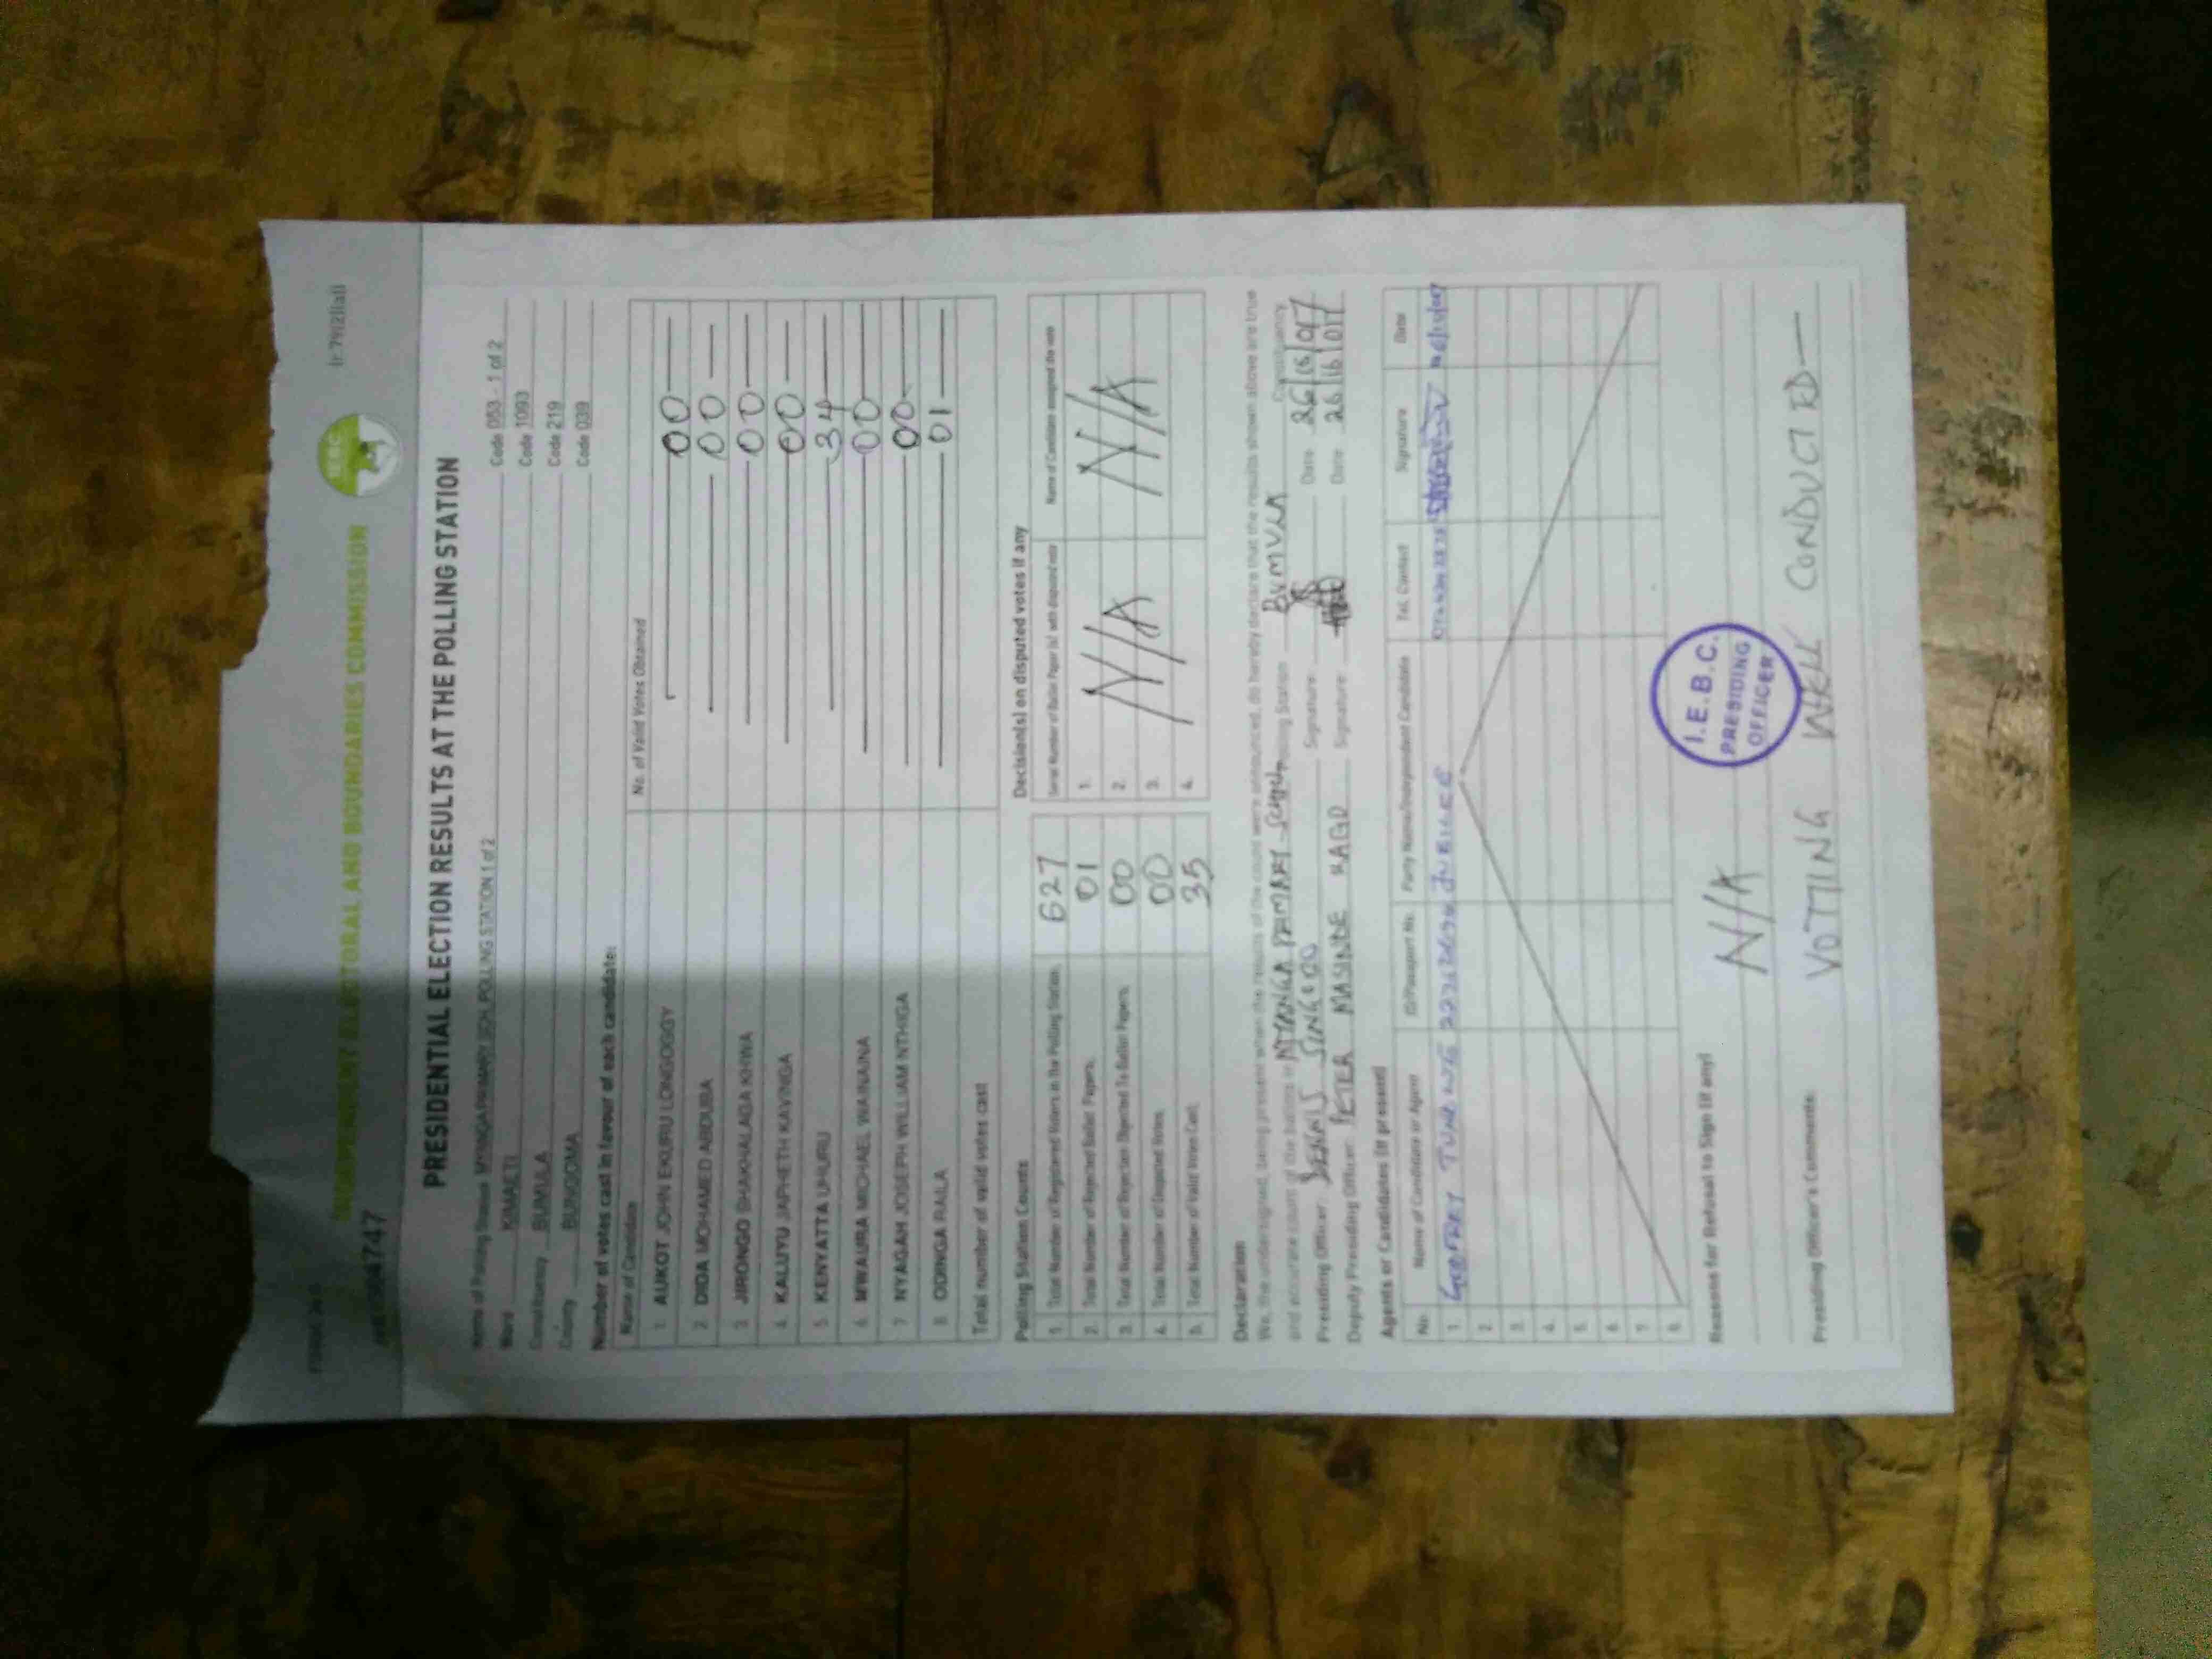 INDEPENDENT ELECTORAL AND BOUNDARIES COMMISSION
I.E.B.C.
PRESIDENTIAL ELECTION RESULTS AT THE POLLING STATION
Name of Polling Station MYANGA PRIMARY SCH. POLLING STATION 1 of 2 Code 053 - 1 of 2
Ward KIMAETI Code 1093
Constituency BUMULA Code 219
County BUNGOMA Code 039
Number of votes cast in favour of each candidate:
Name of Candidate No. of Valid Votes Obtained
1. AUKOT JOHN EKURU LONGOGGY 00
2. DIDA MOHAMED ABDUBA 00
3. JIRONGO SHAKHALAGA KHWA 00
4. KALUYU JAPHETH KAVINGA 00
5. KENYATTA UHURU 34
6. MWAURA MICHAEL WAINAINA 00
7. NYAGAH JOSEPH WILLIAM NTHIGA 00
8. ODINGA RAILA 01
Total number of valid votes cast
Polling Station Counts
1. Total Number of Registered Voters in The Polling Station. 627
2. Total Number of Rejected Ballot Papers. 01
3. Total Number of Rejection Objected To Ballot Papers. 00
4. Total Number of Disputed Votes. 00
5. Total Number of Valid Votes Cast. 35
Decision(s) on disputed votes if any
Serial Number of Ballot Paper (s) with disputed vote Name of Candidate assigned the vote
1.
2.
3.
4.
N/A N/A
Declaration
We, the undersigned, being present when the results of the count were announced, do hereby declare that the results shown above are true
and accurate count of the ballots in PRIMARY Polling Station BUMULA Constituency
Presiding Officer: DENNIS Signature: Date
Deputy Presiding Officer: PETER MASINDE Signature: Date
Agents or Candidates (if present)
No. Name of Candidate or Agent ID/Passport No. Party Name/Independent Candidate Tel. Contact Signature Date
1. GODFREY JUBILEE
2.
3.
4.
5.
6.
7.
8.
Reasons for Refusal to Sign (if any)
N/A
I.E.B.C.
PRESIDING
OFFICER
Presiding Officer's Comments:
VOTING WELL CONDUCTED